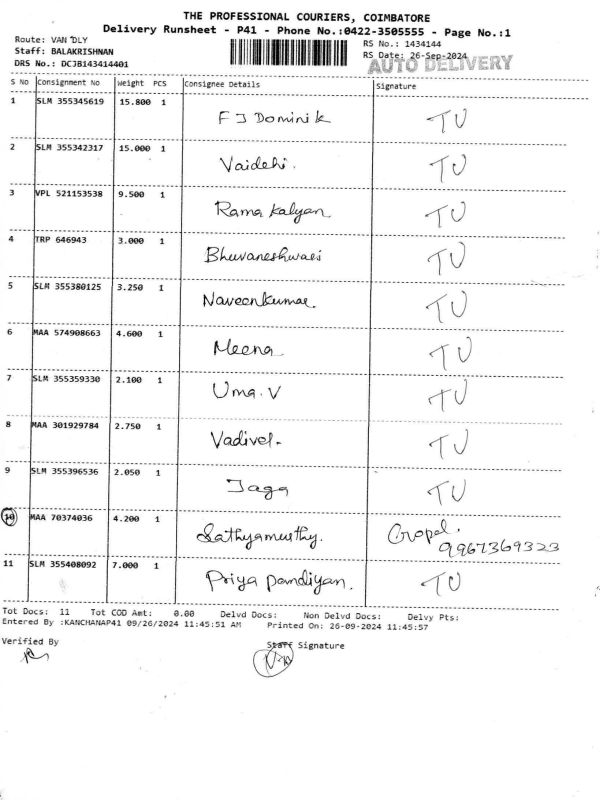 THE PROFESSIONAL COURIERS, COIMBATORE
Delivery Runsheet - P41 - Phone No.:0422-3505555 - Page No.:1
Route: VAN DLY
Staff: BALAKRISHNAN
DRS No.: DCJB143414401
RS No.: 1434144
RS Date: 26-Sep-2024
AUTO DELIVERY
S No Consignment No Weight PCS Consignee Details Signature
1 SLM 355345619 15.800 1 F J Dominik TU
2 SLM 355342317 15.000 1 Vaidehi. TU
3 VPL 521153538 9.500 1 Rama Kalyan TU
4 TRP 646943 3.000 1 Bhuvaneshwari TU
5 SLM 355380125 3.250 1 Naveenkumar. TU
6 MAA 574908663 4.600 1 Meena TU
7 SLM 355359330 2.100 1 Uma. V TU
8 MAA 301929784 2.750 1 Vadivel- TU
9 SLM 355396536 2.050 1 Jaga TU
10 MAA 70374036 4.200 1 Sathyamurthy. Gopal.
9967369323
11 SLM 355408092 7.000 1 Priya pandiyan. TU
Tot Docs: 11 Tot COD Amt: 0.00 Delvd Docs: Non Delvd Docs: Delvy Pts:
Entered By :KANCHANAP41 09/26/2024 11:45:51 AM Printed On: 26-09-2024 11:45:57
Verified By Staff Signature